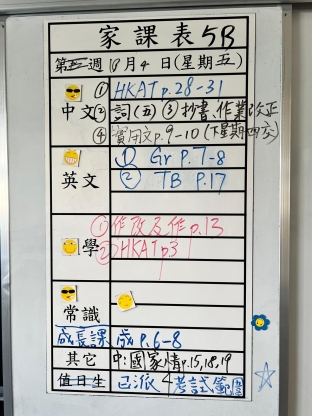 家課表5B
第五週 10月4日(星期五)
中文 ①HKAT p.28-31
②詞(五) ③抄書、作業改正
④實用文p.9-10(下星期四交)
英文 ① Gr P.7-8
② TB P.17
學 ①作改及作p.13
②HKAT p.3
常識
成長課 成p.6-8
其它 中:國家情p.15,18,19
值日生 已派 4 考試範圍